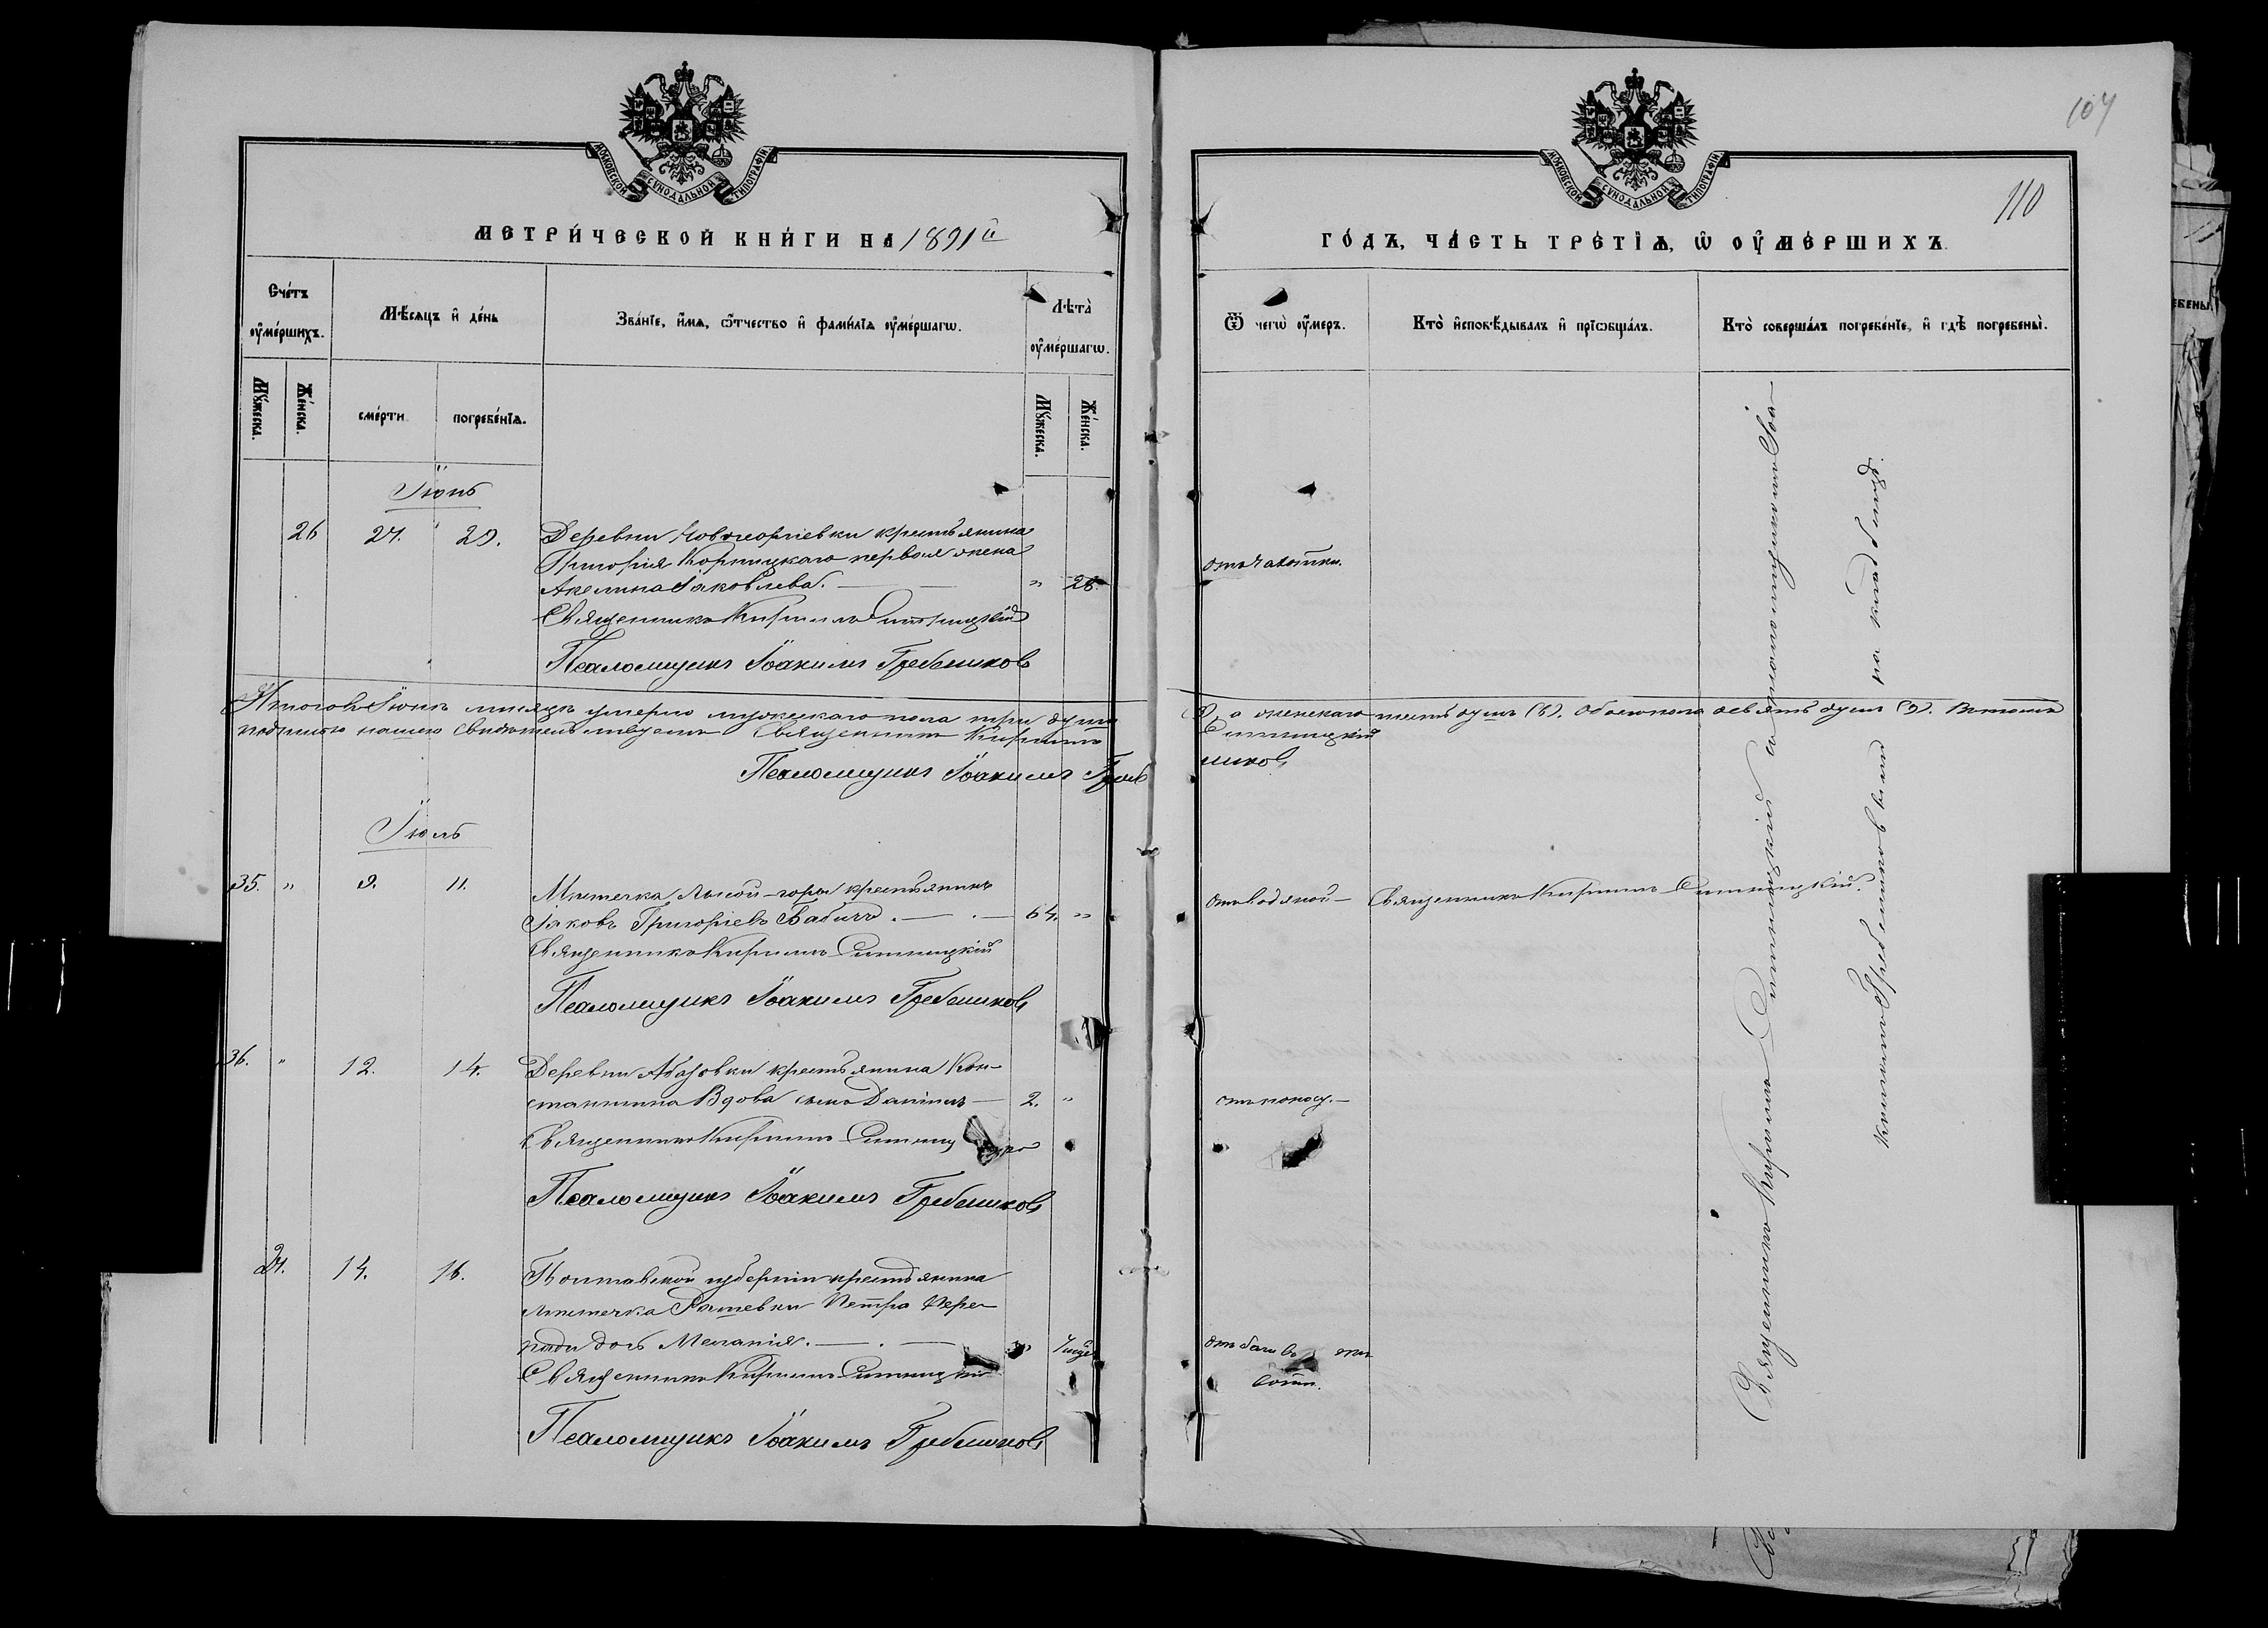 МОСКОВСКОЙ СУНОДАЛЬНОЙ ТИПОГРАФІИ
МЕТРИЧЕСКОЙ КНИГИ НА 1891й
Счетъ оумершихъ.
Мѣсяцъ и день
Званіе, имя, отчество и фамилія оумершагѡ.
Лѣта оумершагѡ.
Мужеска.
Женска.
смерти
погребенія.
Мужеска.
Женска.
Іюнь
26 27. 29. Деревни Новогеоргіевки крестьянина
Григорія Корницкаго первая жена
Акелина Іаковлева. — " 28.
Священникъ Кирилъ Синицкій
Псаломщикъ Іоакимъ Гребешковъ
Итого въ Іюнѣ мѣсяцѣ умерло мужескаго пола три души
подписью нашею свидѣтельствуемъ Священникъ Кирилъ
Псаломщикъ Іоакимъ Греб
Іюль
35. " 9. 11. Мѣстечка Лысой-горы крестьянинъ
Іаковъ Григоріевъ Бабичъ. — 64. "
Священникъ Кирилъ Синицкій
Псаломщикъ Іоакимъ Гребешковъ
36. " 12. 14. Деревни Абазовки крестьянина Кон-
стантина Вдова сынъ Даніилъ — 2. "
Священникъ Кирилъ
Псаломщикъ Іоакимъ Гребешковъ
27. 14. 16. Полтавской губерніи крестьянина
мѣстечка Рашевки Петра Пере-
дочь Меланія. —
Священникъ Кирилъ Синицкій
Псаломщикъ Іоакимъ Гребешковъ
107
110
МОСКОВСКОЙ СУНОДАЛЬНОЙ ТИПОГРАФІИ
ГОДЪ, ЧАСТЬ ТРЕТІЯ, Ѡ ОУМЕРШИХЪ.
Ѿ чегѡ оумеръ.
Кто исповѣдывалъ и пріобщалъ.
Кто совершалъ погребеніе, и гдѣ погребены.
отъ чахотки.
а женскаго шесть душъ (6). Обоего пола девять душъ (9). Въ томъ
Синицкій
шковъ
отъ водяной — Священникъ Кирилъ Синицкій.
отъ поносу. —
Священникъ Кирилъ Синицкій съ псаломщикомъ Іоа-
кимомъ Гребешковымъ на кладбищѣ.